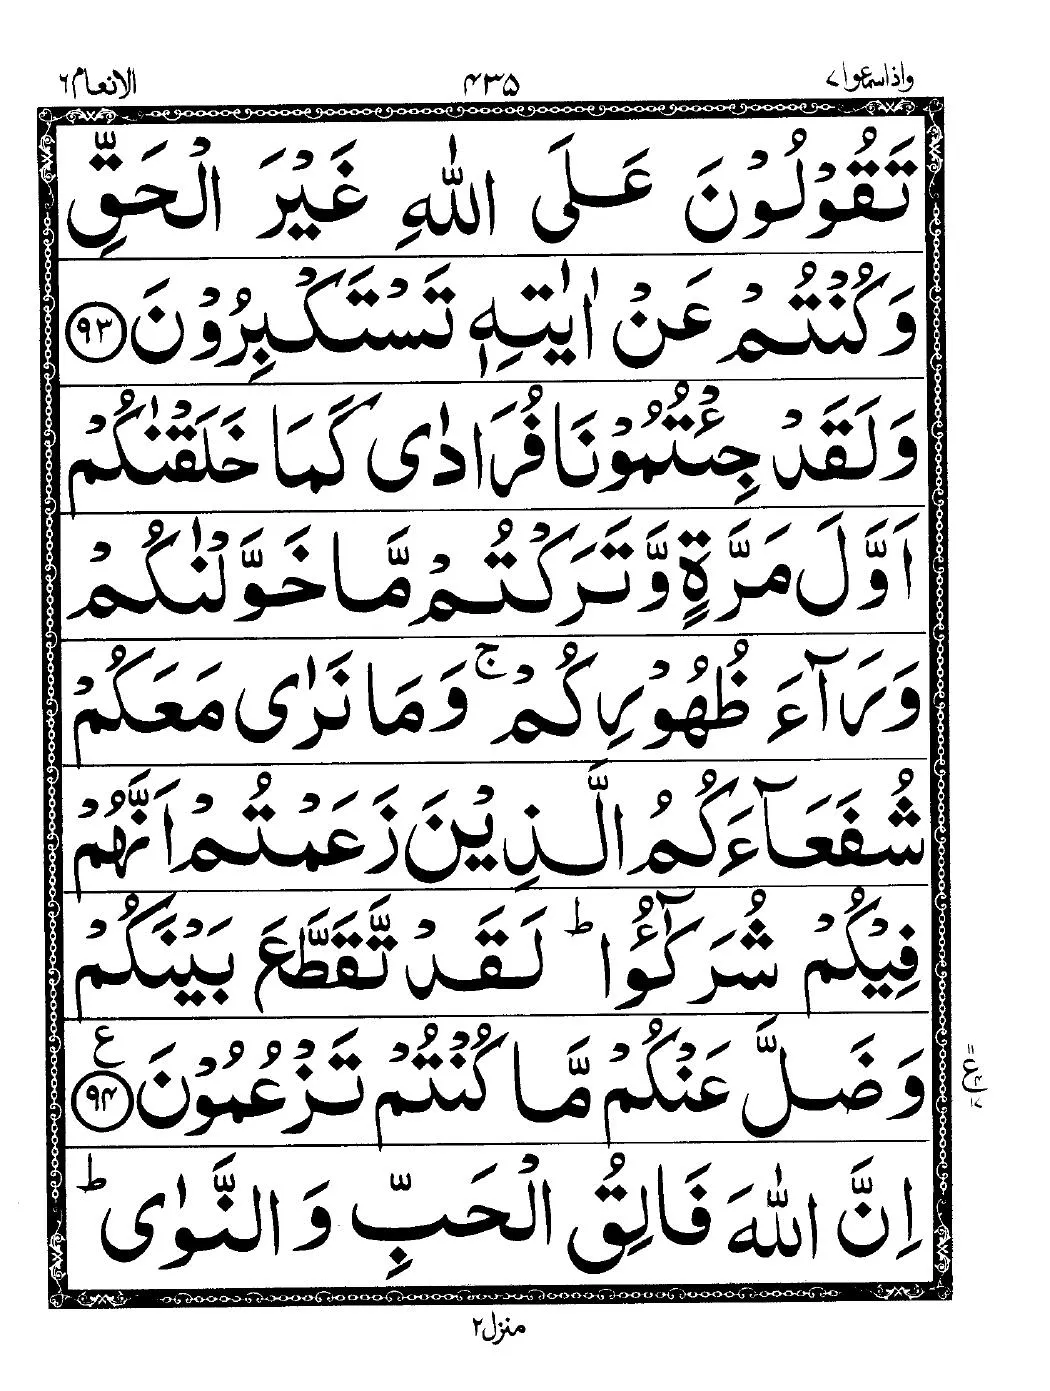 واذاسمعوا۷ ۴۳۵ الانعام۶
تَقُوْلُوْنَ عَلَى اللّٰهِ غَيْرَ الْحَقِّ
وَكُنْتُمْ عَنْ اٰيٰتِهٖ تَسْتَكْبِرُوْنَ ﴿۹۳﴾
وَلَقَدْ جِئْتُمُوْنَا فُرَادٰى كَمَا خَلَقْنٰكُمْ
اَوَّلَ مَرَّةٍ وَّتَرَكْتُمْ مَّا خَوَّلْنٰكُمْ
وَرَآءَ ظُهُوْرِكُمْ ۚ وَمَا نَرٰى مَعَكُمْ
شُفَعَآءَكُمُ الَّذِيْنَ زَعَمْتُمْ اَنَّهُمْ
فِيْكُمْ شُرَكٰٓؤُا ؕ لَقَدْ تَّقَطَّعَ بَيْنَكُمْ
وَضَلَّ عَنْكُمْ مَّا كُنْتُمْ تَزْعُمُوْنَ ﴿۹۴﴾ ع
۱۱ ع ۴ ۱۷
اِنَّ اللّٰهَ فَالِقُ الْحَبِّ وَالنَّوٰى ؕ
منزل۲